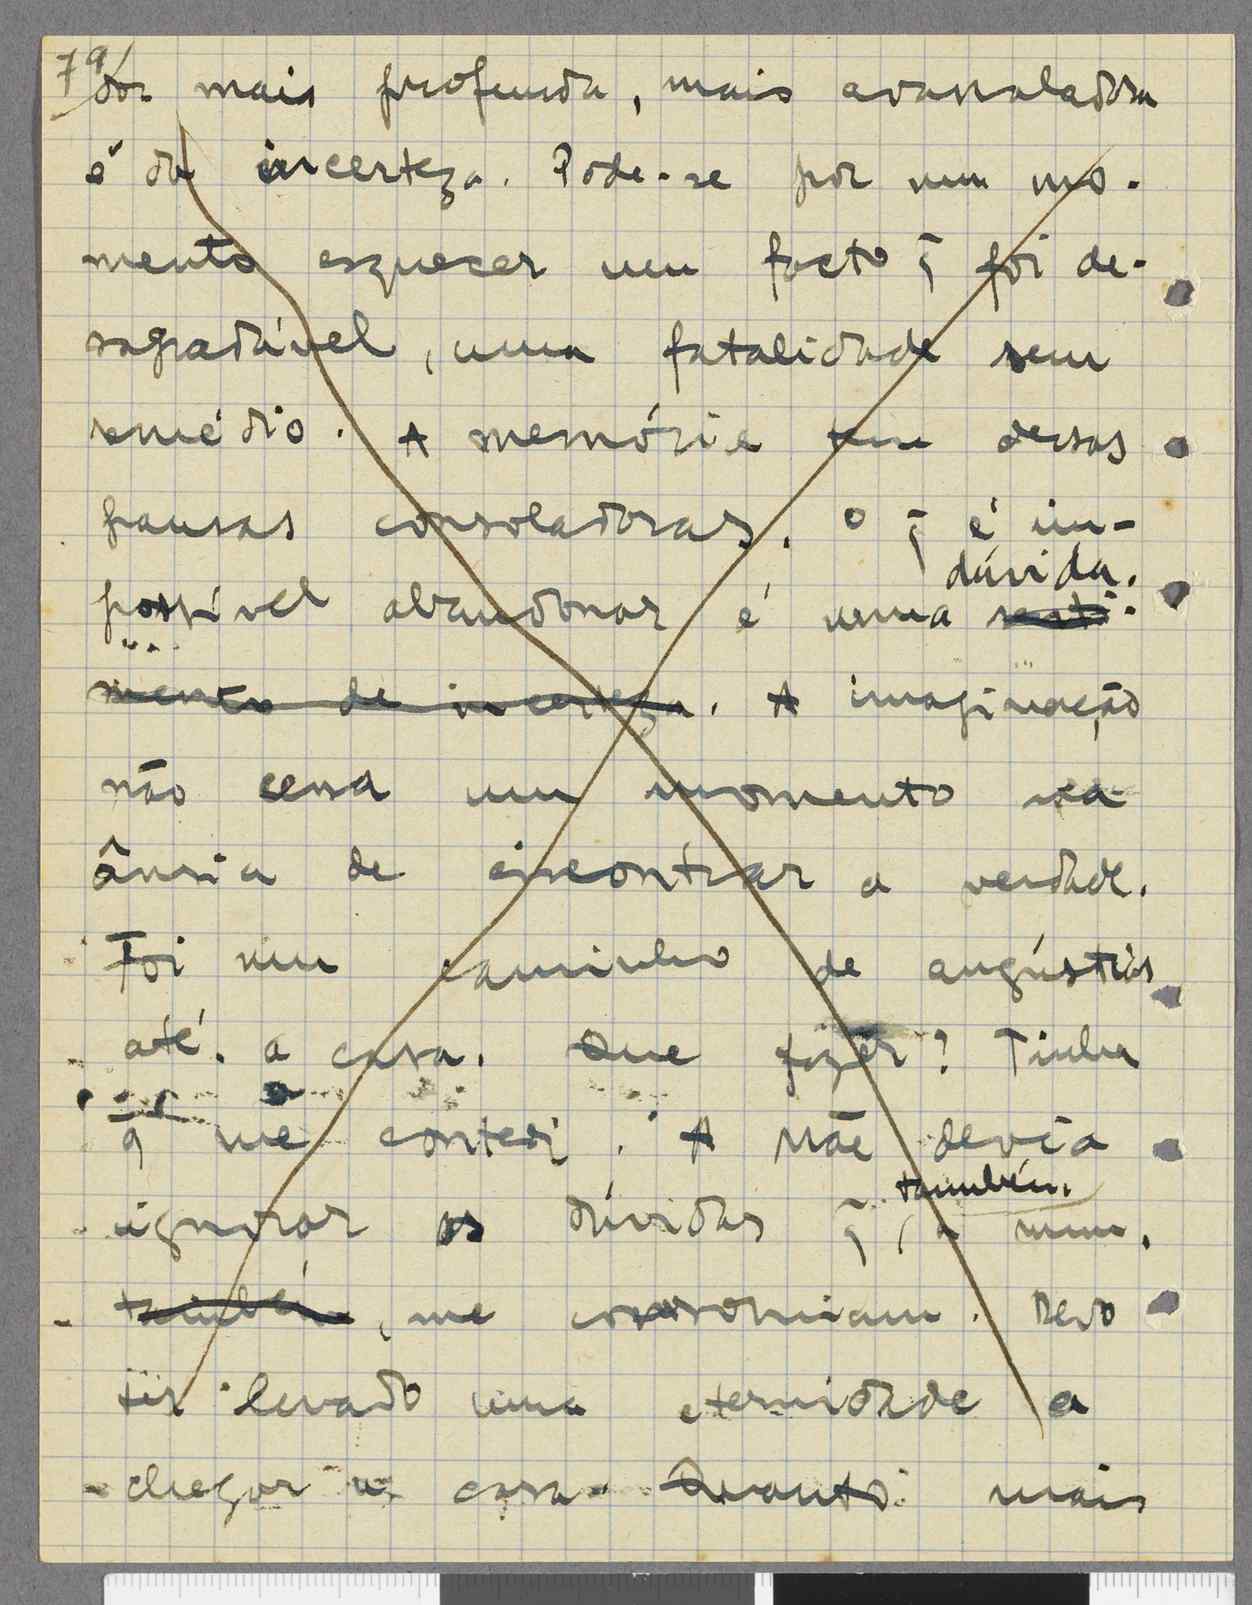 79/
dor mais profunda, mais avassaladora
é da incerteza. Pode-se por um mo-
mento esquecer um facto q̃ foi de-
sagradável, uma fatalidade sem
remédio. A memória tem dessas
pausas consoladoras. O q̃ é im-
dúvida.
possível abandonar é uma senti-
mento de incerteza. A imaginação
não cessa um momento na
ânsia de encontrar a verdade.
Foi um caminho de angústias
até a casa. Que fazer? Tinha
q̃ me conter. A Mãe devia
também,
ignorar as dúvidas q̃, a mim,
também, me consomiam. Devo
ter levado uma eternidade a
chegar a casa. Quanto mais